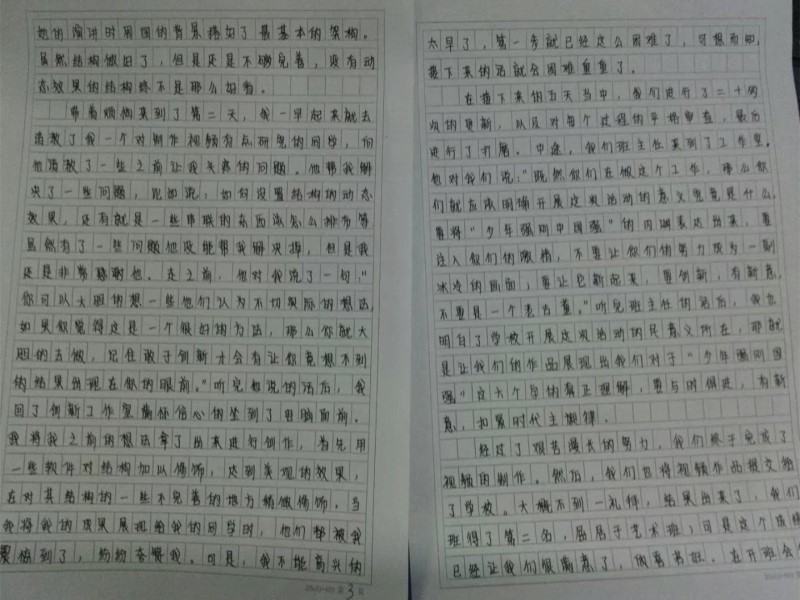 她的演讲时用图的背景搭好了最基本的架构。
虽然结构做好了，但是还是不够完善，没有动
态效果的结构终不是那么好看。
带着烦恼来到了第二天，我一早起来就去
请教了我一个对制作视频有点研究的同学，向
他请教了一些之前让我头疼的问题。他帮我解
决了一些问题，比如说：如何设置结构的动态
效果，还有就是一些串联的东西该怎么排布等
虽然有了一些问题他没能帮我解决掉，但是我
还是非常感谢他。走之前，他对我说了一句："
你可以大胆的想一些他们认为不切实际的想法，
如果你觉得这是一个很好的办法，那么你就大
胆的去做，记住敢于创新才会有让你意想不到
的结果出现在你的眼前。"听完他说的话后，我
回了创新工作室满怀信心的坐到了电脑面前。
我将我之前的想法拿了出来进行创作，首先用
一些软件对结构加以修饰，达到美观的效果，
在对其结构的一些不完善的地方稍做修饰。当
我将我的成果展现给我的同学时，他们都被我
震撼到了，纷纷夸赞我。可是，我不能高兴的
第3页
太早了，第一步就已经这么困难了，可想而知，
接下来的话就会困难重重了。
在接下来的五天当中，我们进行了二十多
次的更新，以及对每个过程的严格审查，最后
进行了打磨。中途，我们班主任来到了工作室。
他对我们说："既然你们在做这个工作，那么你
们就应该明确开展这次活动的意义究竟是什么，
要将"少年强则中国强"的内涵表达出来，要
注入你们的激情，不要让你们的努力成为一副
冰冷的画面，要让它新起来，要创新，有新意，
不要是一个表古董。"听完班主任的话后，我也
明白了学校开展这次活动的民意义所在，那就
是让我们的作品展现出我们对于"少年强则国
强"这六个字的真正理解，要与时俱进，有新
意，扣紧时代主旋律。
经过了艰苦漫长的努力，我们终于完成了
视频的制作。然后，我们也将视频作品提交给
了学校。大概不到一礼拜，结果出来了，我们
班得了第二名，屈居于艺术班；可是这个成绩
已经让我们很满意了，